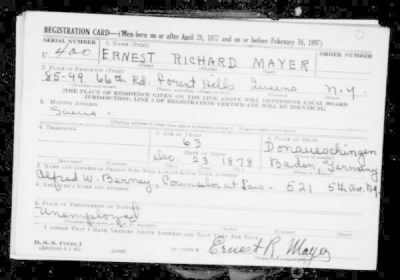 REGISTRATION CARD—(Men born on or after April 28, 1877 and on or before February 16, 1897)
SERIAL NUMBER 1. NAME (Print) ORDER NUMBER
U 400 ERNEST RICHARD MAYER
2. PLACE OF RESIDENCE (Print)
85-99 66th Rd. Forest Hills Queens N.Y.
[THE PLACE OF RESIDENCE GIVEN ON THE LINE ABOVE WILL DETERMINE LOCAL BOARD
JURISDICTION; LINE 2 OF REGISTRATION CERTIFICATE WILL BE IDENTICAL]
3. MAILING ADDRESS
Same
4. TELEPHONE 5. AGE IN YEARS 6. PLACE OF BIRTH
63 Donaueschingen
DATE OF BIRTH
Dec. 23 1878 Baden, Germany
7. NAME AND ADDRESS OF PERSON WHO WILL ALWAYS KNOW YOUR ADDRESS
Alfred W. Barney, Counselor at Law - 521 5th Av.
8. EMPLOYER'S NAME AND ADDRESS
Unemployed
9. PLACE OF EMPLOYMENT OR BUSINESS
I AFFIRM THAT I HAVE VERIFIED ABOVE ANSWERS AND THAT THEY ARE TRUE.
D. S. S. Form 1
Ernest R. Mayer